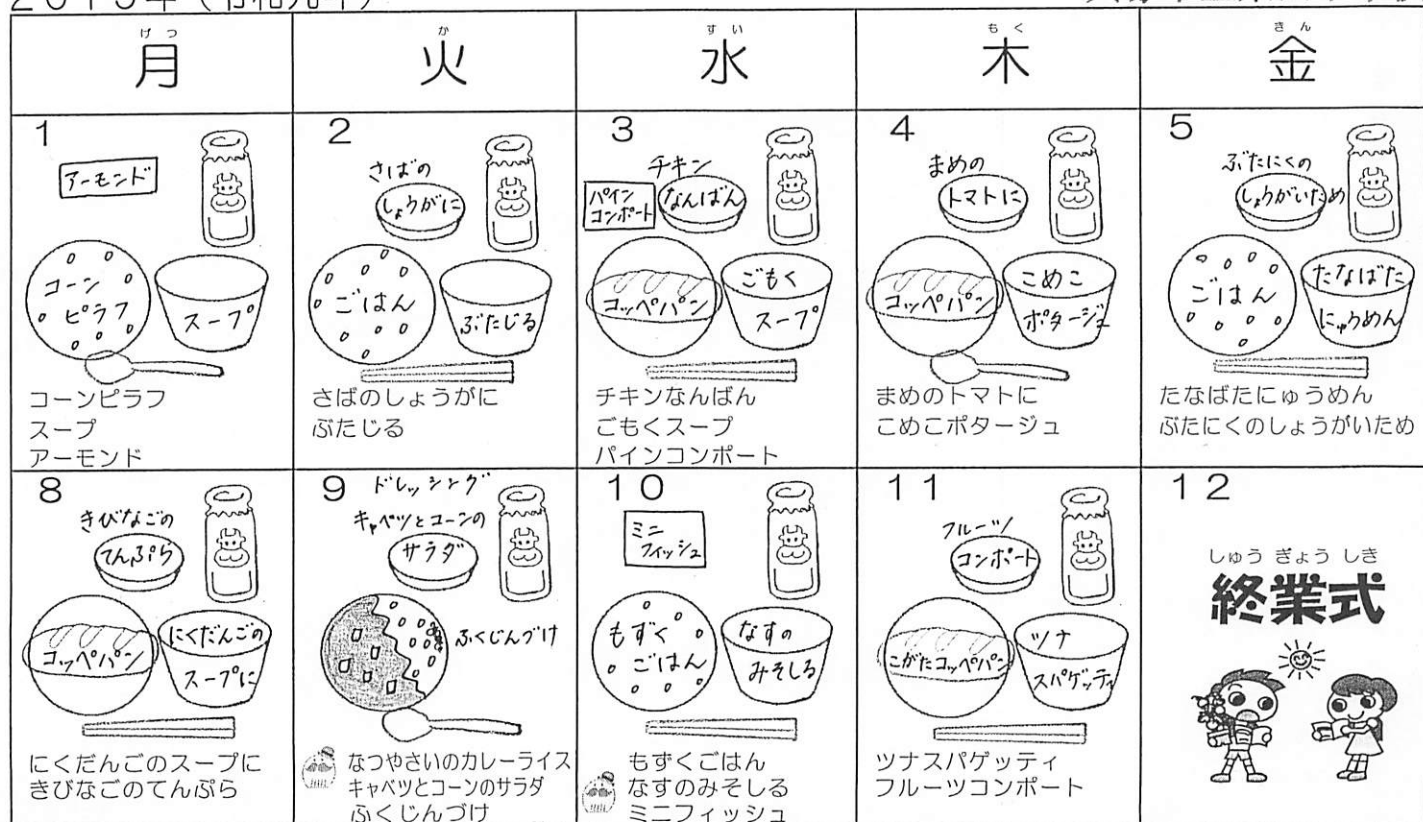 げつ
月
か
火
すい
水
もく
木
きん
金
1
アーモンド
コーン
ピラフ
スープ
コーンピラフ
スープ
アーモンド
2
さばの
しょうがに
ごはん
ぶたじる
さばのしょうがに
ぶたじる
3
チキン
なんばん
パイン
コンポート
コッペパン
ごもく
スープ
チキンなんばん
ごもくスープ
パインコンポート
4
まめの
トマトに
コッペパン
こめこ
ポタージュ
まめのトマトに
こめこポタージュ
5
ぶたにくの
しょうがいため
ごはん
たなばた
にゅうめん
たなばたにゅうめん
ぶたにくのしょうがいため
8
きびなごの
てんぷら
コッペパン
にくだんごの
スープに
にくだんごのスープに
きびなごのてんぷら
9
ドレッシング
キャベツとコーンの
サラダ
ふくじんづけ
なつやさいのカレーライス
キャベツとコーンのサラダ
ふくじんづけ
10
ミニ
フィッシュ
もずく
ごはん
なすの
みそしる
もずくごはん
なすのみそしる
ミニフィッシュ
11
フルーツ
コンポート
こがたコッペパン
ツナ
スパゲッティ
ツナスパゲッティ
フルーツコンポート
12
しゅう ぎょう しき
終業式